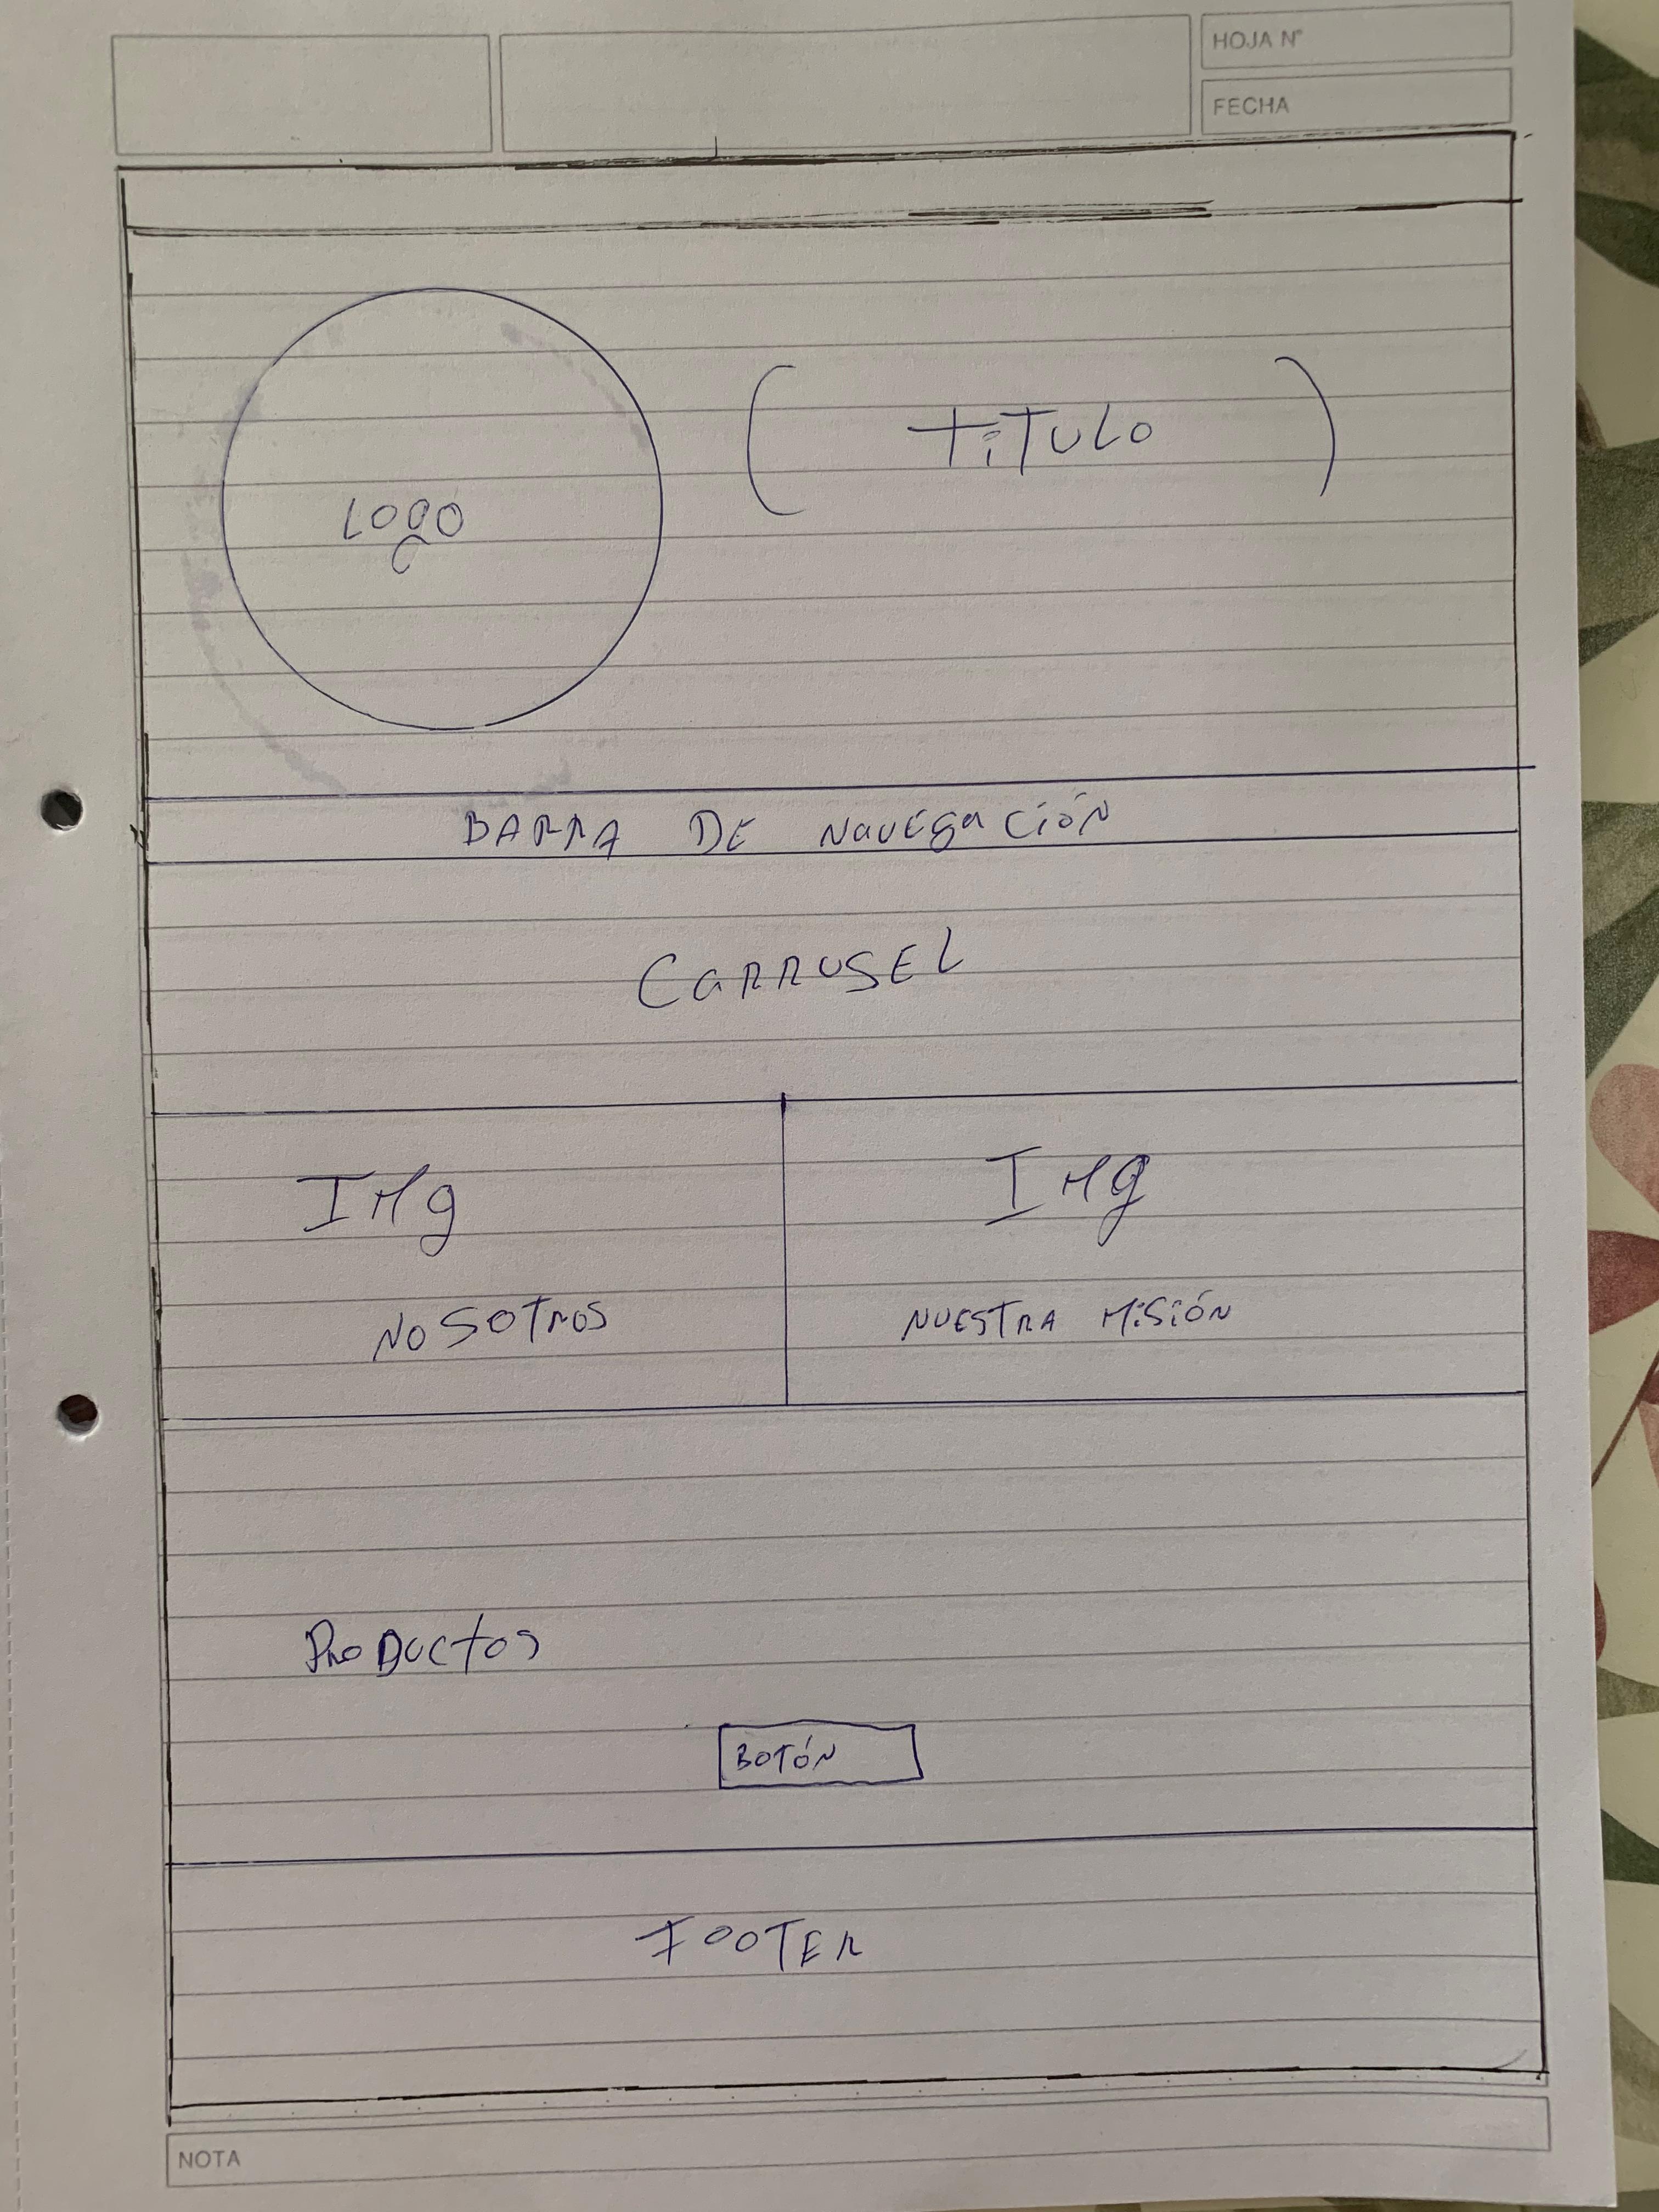 HOJA N°
FECHA
( TiTULO )
LOGO
BARRA DE NavEgaCión
CaRRUSEL
IMg
IMg
NOSOTROS
NUESTRA MiSiÓN
PRODUCtos
BOTÓN
FOOTER
NOTA